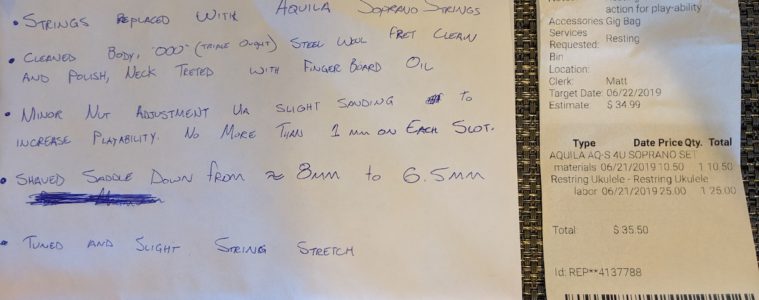 • Strings Replaced With Aquila Soprano Strings
• Cleaned Body, "000" (Triple Ought) Steel Wool Fret Clean
and Polish, Neck Treted with Finger Board Oil
• Minor Nut Adjustment Via slight sanding to
increase Playability. No More Than 1 mm on Each Slot.
• Shaved Saddle Down from ≈ 8mm to 6.5mm
• Tuned and Slight String Stretch
action for play-ability
Accessories Gig Bag
Services
Requested: Resting
Bin
Location:
Clerk: Matt
Target Date: 06/22/2019
Estimate: $ 34.99
Type Date Price Qty. Total
AQUILA AQ-S 4U SOPRANO SET
materials 06/21/2019 10.50 1 10.50
Restring Ukulele - Restring Ukulele
labor 06/21/2019 25.00 1 25.00
Total: $ 35.50
Id: REP**4137788